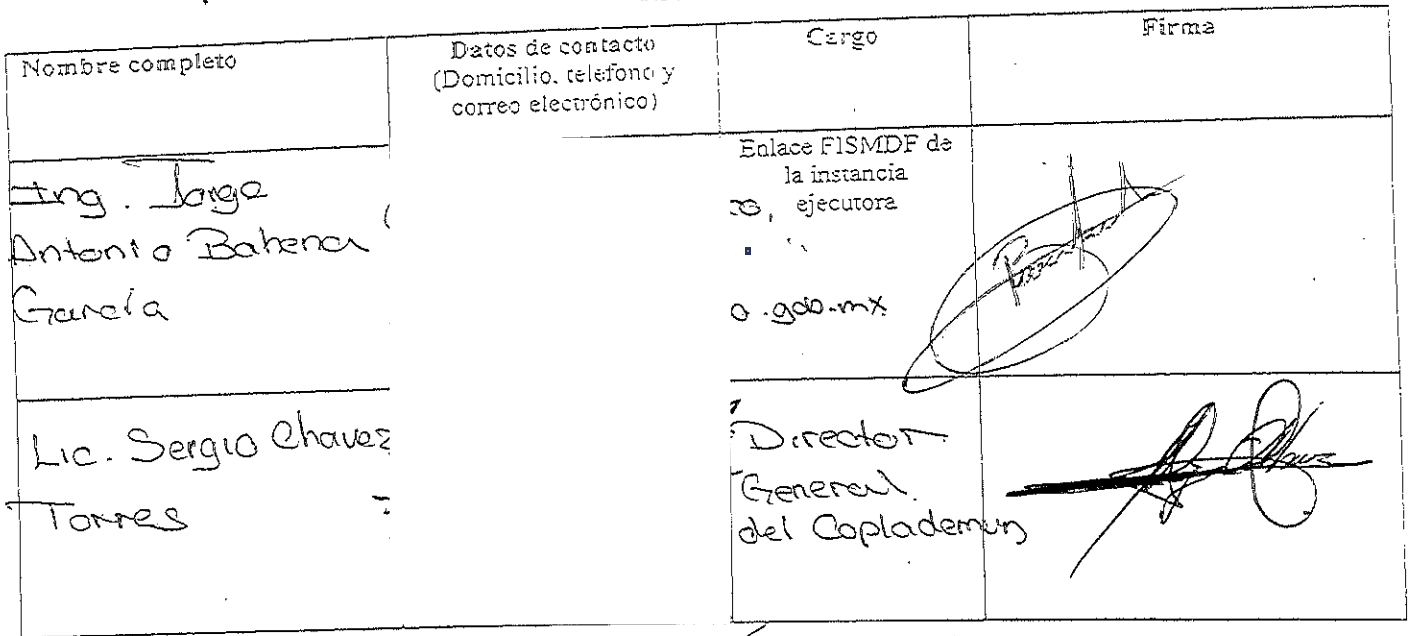 Nombre completo
Datos de contacto
(Domicilio, teléfono y
correo electrónico)
Cargo
Firma
Ing. Jorge
Antonio Bahena
García
Enlace FISMDF de
la instancia
ejecutora
co,
o.gob.mx
Lic. Sergio Chavez
Torres
Director
General.
del Coplademun